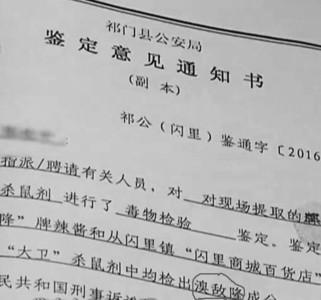 祁门县公安局
鉴定意见通知书
（副 本）
祁公（闪里）鉴通字〔2016
指派/聘请有关人员，对 对现场提取的
杀鼠剂 进行了 毒物检验 鉴定。鉴定
隆”牌辣酱和从闪里镇“闪里商城百货店”
“大卫”杀鼠剂中均检出溴敌隆成
民共和国刑事诉